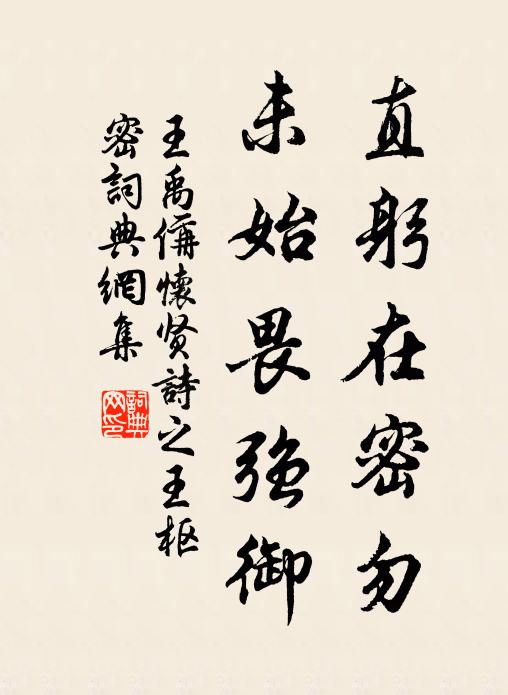 直躬在密勿
未始畏強御
王禹偁懷贤詩之王枢
密詞典網集
詞典
网印